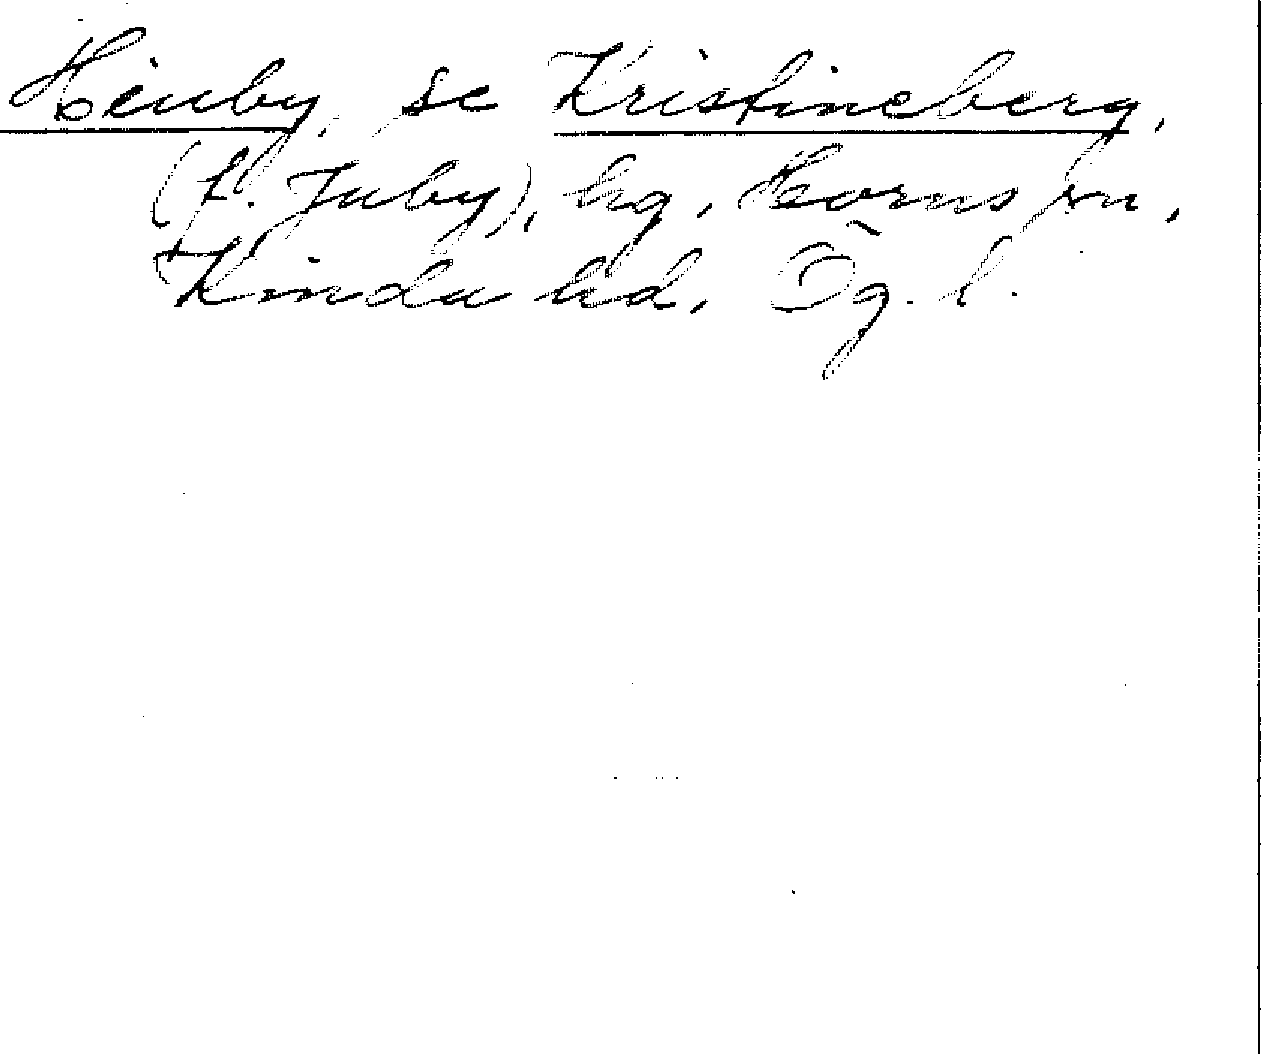 Hiuby, se Kristineberg,
(f. Juby), hg, Horns sn,
Kinda hd. Ög. l.